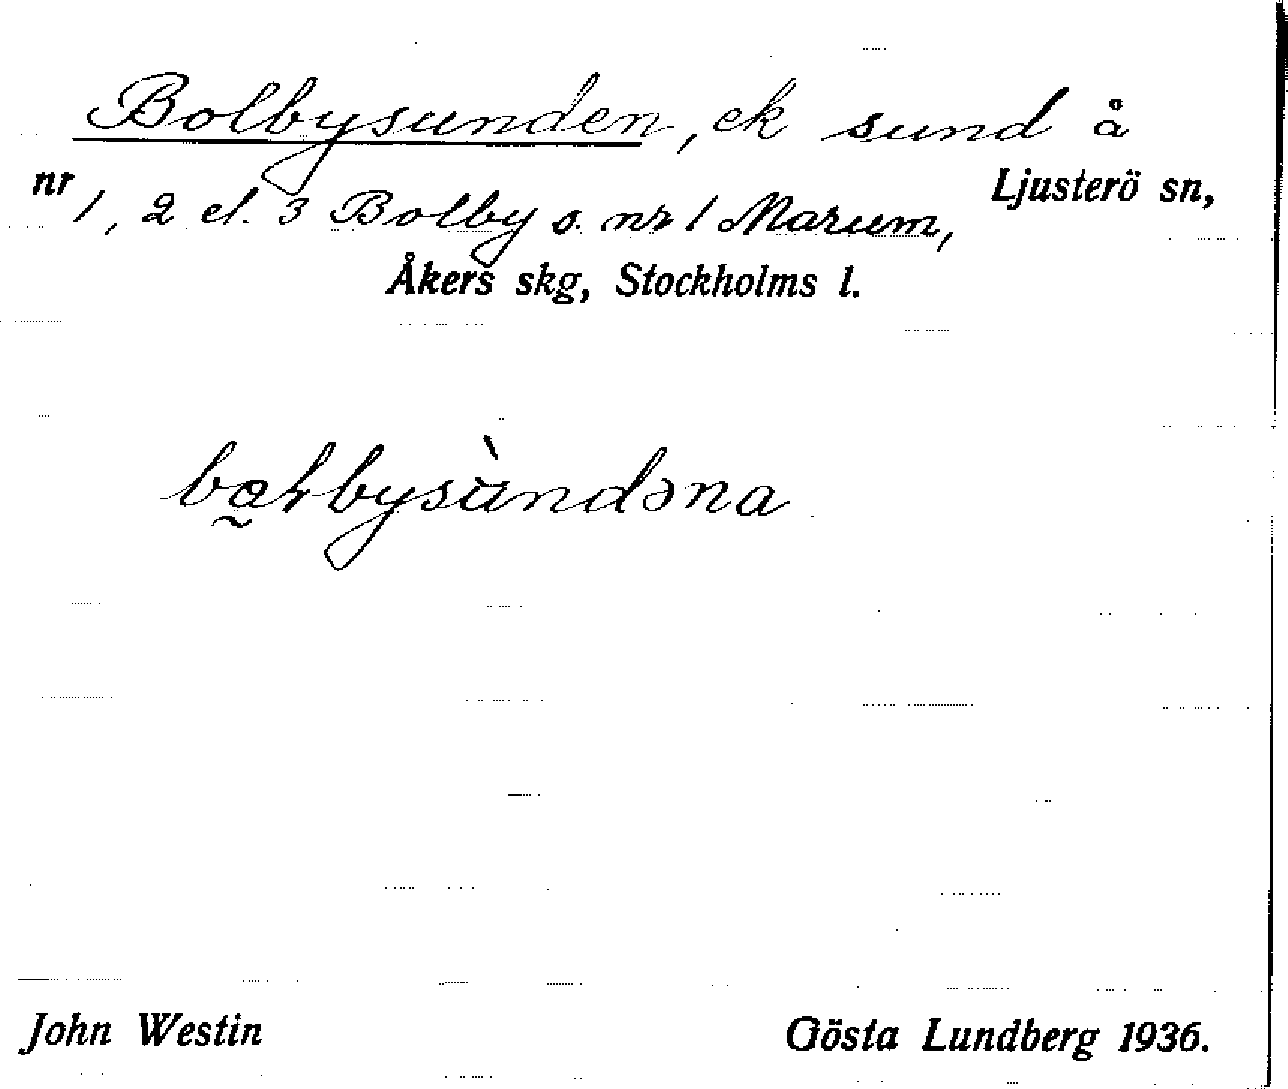 Bolbysunden, ek sund å
nr 1, 2 el. 3 Bolby s. nr 1 Marum, Ljusterö sn,
Åkers skg, Stockholms l.
bołbysùndəna
John Westin Gösta Lundberg 1936.